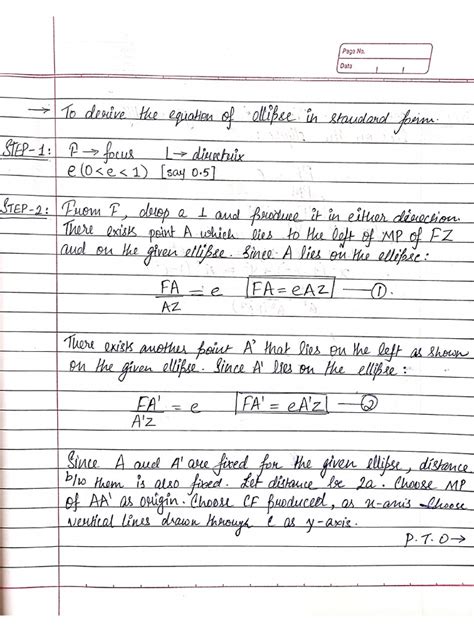 Page No.
Date
→ To derive the equation of ellipse in standard form.
STEP-1: F → focus L → directrix
e (0<e<1) [say 0.5]
STEP-2: From F, drop a ⊥ and produce it in either direction.
There exists point A which lies to the left of MP of FZ
and on the given ellipse. Since A lies on the ellipse:
FA/AZ = e FA = eAZ — ①.
There exists another point A' that lies on the left as shown
on the given ellipse. Since A' lies on the ellipse:
FA'/A'Z = e FA' = eA'Z — ②
Since A and A' are fixed for the given ellipse, distance
b/w them is also fixed. Let distance be 2a. Choose MP
of AA' as origin. Choose CF produced, as x-axis Choose
vertical lines drawn through C as y-axis.
P.T.O→